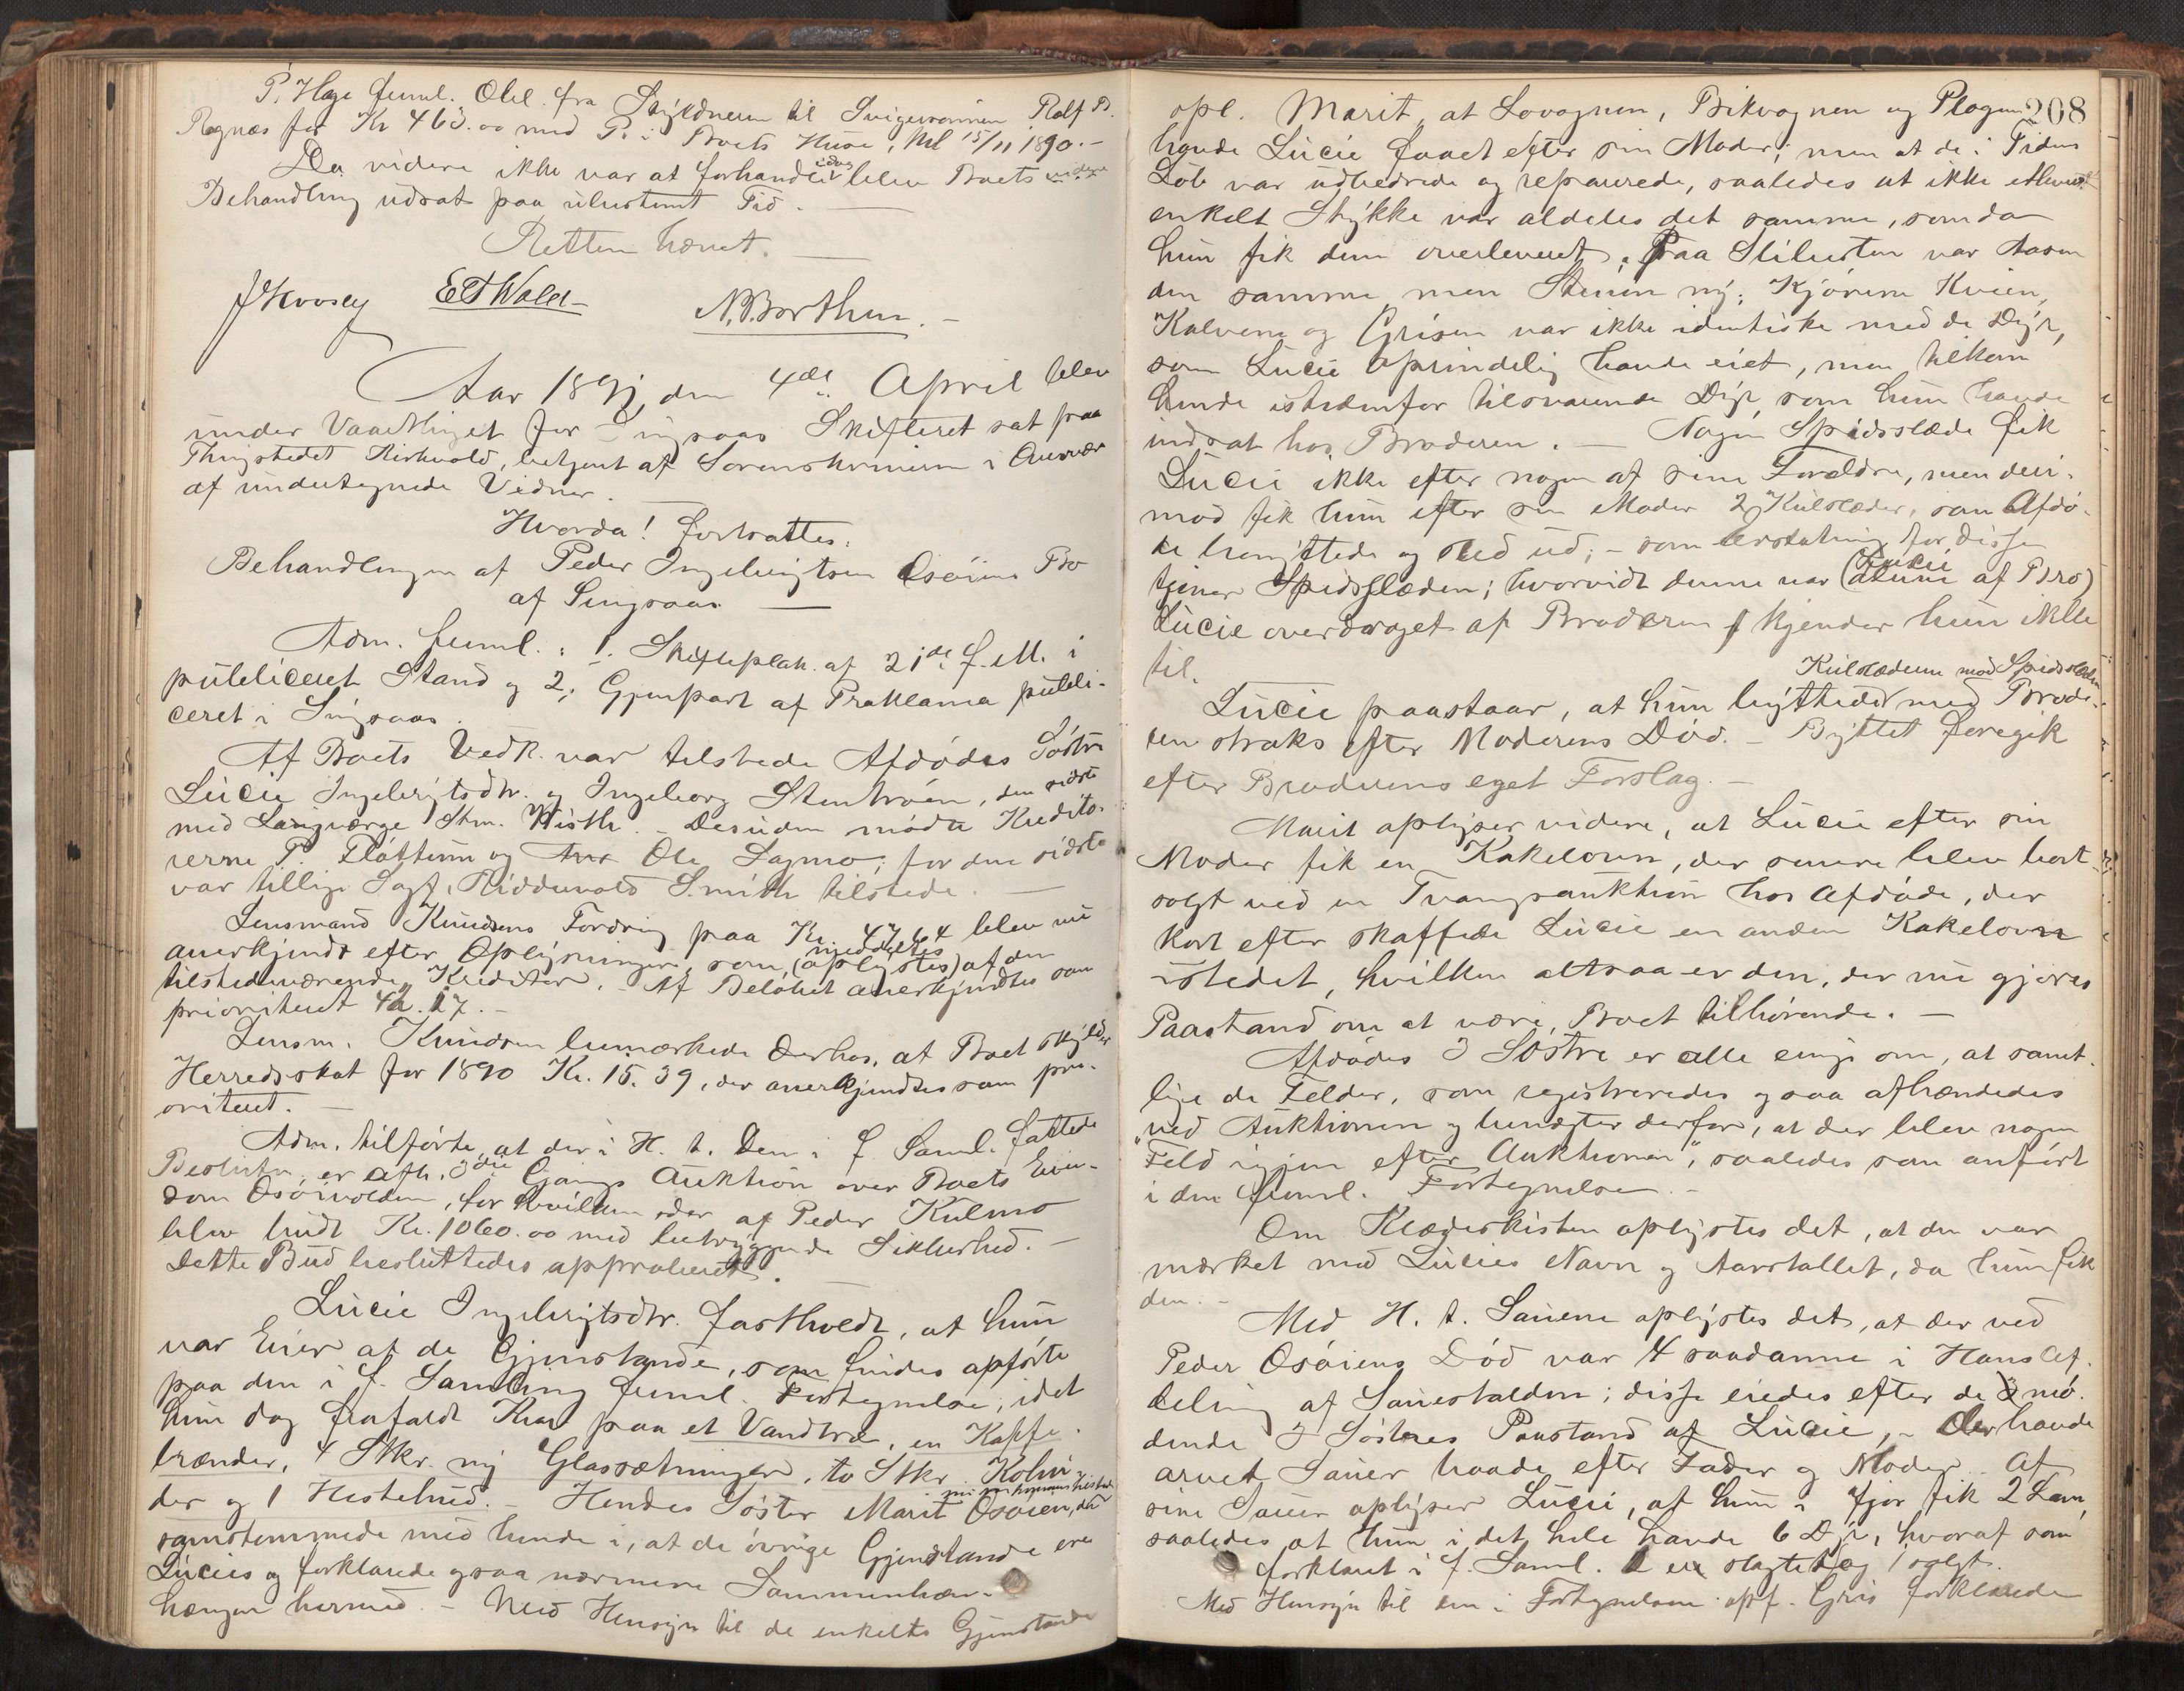 P. Hage freml. Obl. fra Skyldneren til Svigersønnen Rolf P.
Rognæs for Kr 463.00 med P. i Boets Huse, thl 15/11 1890.-
Da videre ikke var at forhandle idag blev Boets videre
Behandling udsat paa ubestemt Tid.
Retten hævet.
N. P. Borthen.
Aar 1891, den 4de April blev
under Vaarthinget for Singsaas Skifteret sat paa
Thingstedet Kirkvold, betjent af Sorenskriveren i Overvær
af undertegnede Vidner.
Hvorda! fortsattes:
Behandlingen af Peder Ingebrigtsen Osøiens Bo
af Singsaas
Adm. freml.: 1. Skifteplak. af 21de f. M. i
publiceret Stand og 2, Gjenpart af Proklama publi-
ceret i Singsaas.
Af Boets Vedk. var tilstede Afdødes Søstre
Lucie Ingebrigtsdtr. og Ingeborg Stentrøen, den sidste
med Laugværge Stm. Wisth. - Desuden mødte Kredito-
rerne P. Flottum og Ole Sagmo; for den sidste
var tillige Sagf. Riddervold Smith tilstede.
Lensmand Knudsens Fordring paa Kr. 47.64 blev nu
anerkjendt efter Oplysninger, som (oplystes) meddeltes af den
tilstedeværende Kreditor. - Af Beløbet anerkjendtes som
prioriteret 42.17.-
Lensm. Knudsen bemærkede derhos, at Boet skylder
Herredsskat for 1890 Kr. 15.39, der anerkjendtes som pri-
oriteret.
Adm. tilførte, at der i H. t. den i f. Saml. fattede
Beslutn. er afh. 3die Gangs Auktion over Boets Eien-
dom Osøivolden, for hvilken der af Peder Kulmo
blev budt Kr. 1060.00 med betryggende Sikkerhed.-
Dette Bud besluttedes approberet.
Lucie Ingebrigtsdtr. fastholdt, at hun
var Eier af de Gjenstande, som findes opførte
paa den i f. Samling freml. Fortegnelse, idet
hun dog frafaldt Krav paa et Vandtræ, en Kaffe-
brænder, 4 Stkr. ny Glassætninger, to Stkr.
der og 1 Hestehud. - Hendes Søster Marit Osøien, der
samstemmede med hende i, at de øvrige Gjenstande ere
Lucies og forklarede ogsaa nærmere Sammenhæn-
hængen hermed. - Med Hensyn til de enkelte Gjenstande
208
opl. Marit, at Lovognen, Bikvognen og Plogen
havde Lucie faaet efter sin Moder; men at de i Tidens
Løb var udbedrede og reparerede, saaledes at ikke ethvert
enkelt Stykke var aldeles det samme, som da
hun fik dem overleveret. Paa Slibesten var Aasen
den samme men Stenen ny; Kjørene Kvien,
Kalvene og Grisen var ikke identiske med de Dyr,
som Lucie oprindelig havde eiet, men tilkom
hende istedenfor tilsvarende Dyr, som hun havde
indsat hos Broderen. - Nogen Spidsslæde fik
Lucie ikke efter nogen af sine Forældre, men deri-
mod fik hun efter sin Moder 2 Kulslæder, som Afdø-
de benyttede og sled ud; - som Erstatning for disse
tjener Spidsslæden; hvorvidt denne var
Lucie overdraget af Broderen kjender hun ikke
til.
Kulslæderne mod Spidsslæden
Lucie paastaar, at hun byttede med Brode-
ren straks efter Moderens Død. - Byttet foregik
efter Broderens eget Forslag.-
Marit oplyser videre, at Lucie efter sin
Moder fik en Kakelovn, der senere blev bort-
solgt ved en Tvangsauktion hos Afdøde, der
kort efter skaffede Lucie en anden Kakelovn
istedet, hvilken altsaa er den, der nu gjøres
Paastand om at være Boet tilhørende.-
Afdødes 3 Søstre er alle enige om, at samt-
lige de Felder, som registreredes ogsaa afhændedes
ved Auktionen og benægter derfor, at der blev nogen
"Feld igjen efter Auktionen", saaledes som anført
i den freml. Fortegnelse.-
Om Klædeskisten oplystes det, at den var
mærket med Lucies Navn og Aarstallet, da hun fik
den.-
Med H. t. Sauene oplystes det, at der ved
Peder Osøiens Død var 4 saadanne i Hans Af-
deling af Sauestalden; disse eiedes efter de 3 mø-
dende 3 Søstres Paastand af Lucie, - der havde
arvet Sauer baade efter Fader og Moder. Af
sine Sauer oplyser Lucie, at hun i fjor fik 2 Lam,
saaledes at hun i det hele havde 6 Dyr, hvoraf som
forklaret i f. Saml. 1 er slagtet og 1 solgt.
Med Hensyn til den i Fortegnelsen opf. Gris forklarede